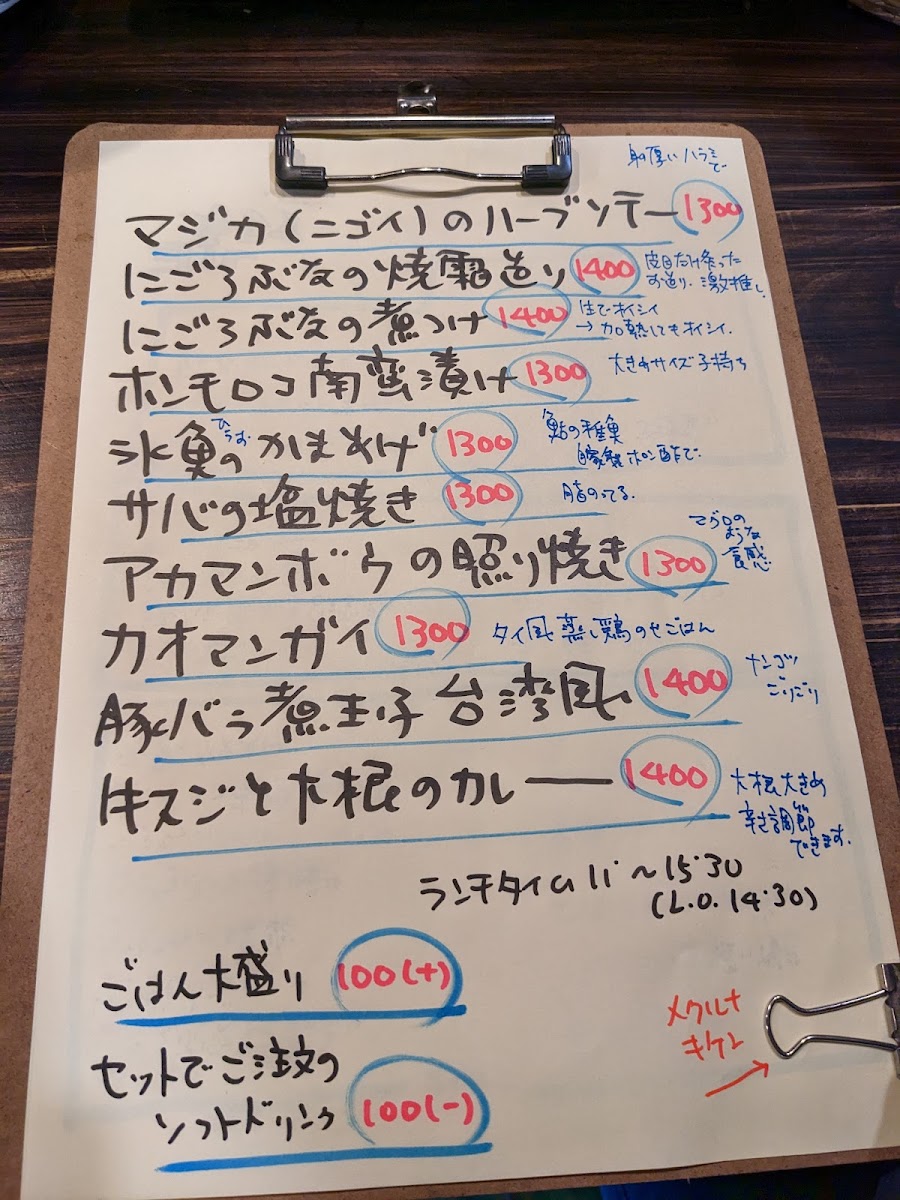 身厚いハラミで
マジカ(ニゴイ)のハーブソテー 1300
にごろぶなの焼霜造り 1400
皮目だけ炙った
お造り. 激推し.
にごろぶなの煮つけ 1400
生でオイシイ
→加熱してもオイシイ.
ホンモロコ南蛮漬け 1300
大きめサイズ子持ち
氷魚のかまあげ 1300
ひうお
鮎の稚魚
自家製ポン酢で.
サバの塩焼き 1300
脂のってる.
アカマンボウの照り焼き 1300
マグロの
ような
食感
カオマンガイ 1300
タイ風蒸し鶏のせごはん
豚バラ煮玉子 台湾風 1400
ナンコツ
こりこり
牛スジと大根のカレー 1400
大根大きめ
辛さ調節
できます.
ランチタイム 11:~15:30
(L.O. 14:30)
ごはん大盛り 100(+)
セットでご注文の
ソフトドリンク 100(-)
メクルナ
キケン